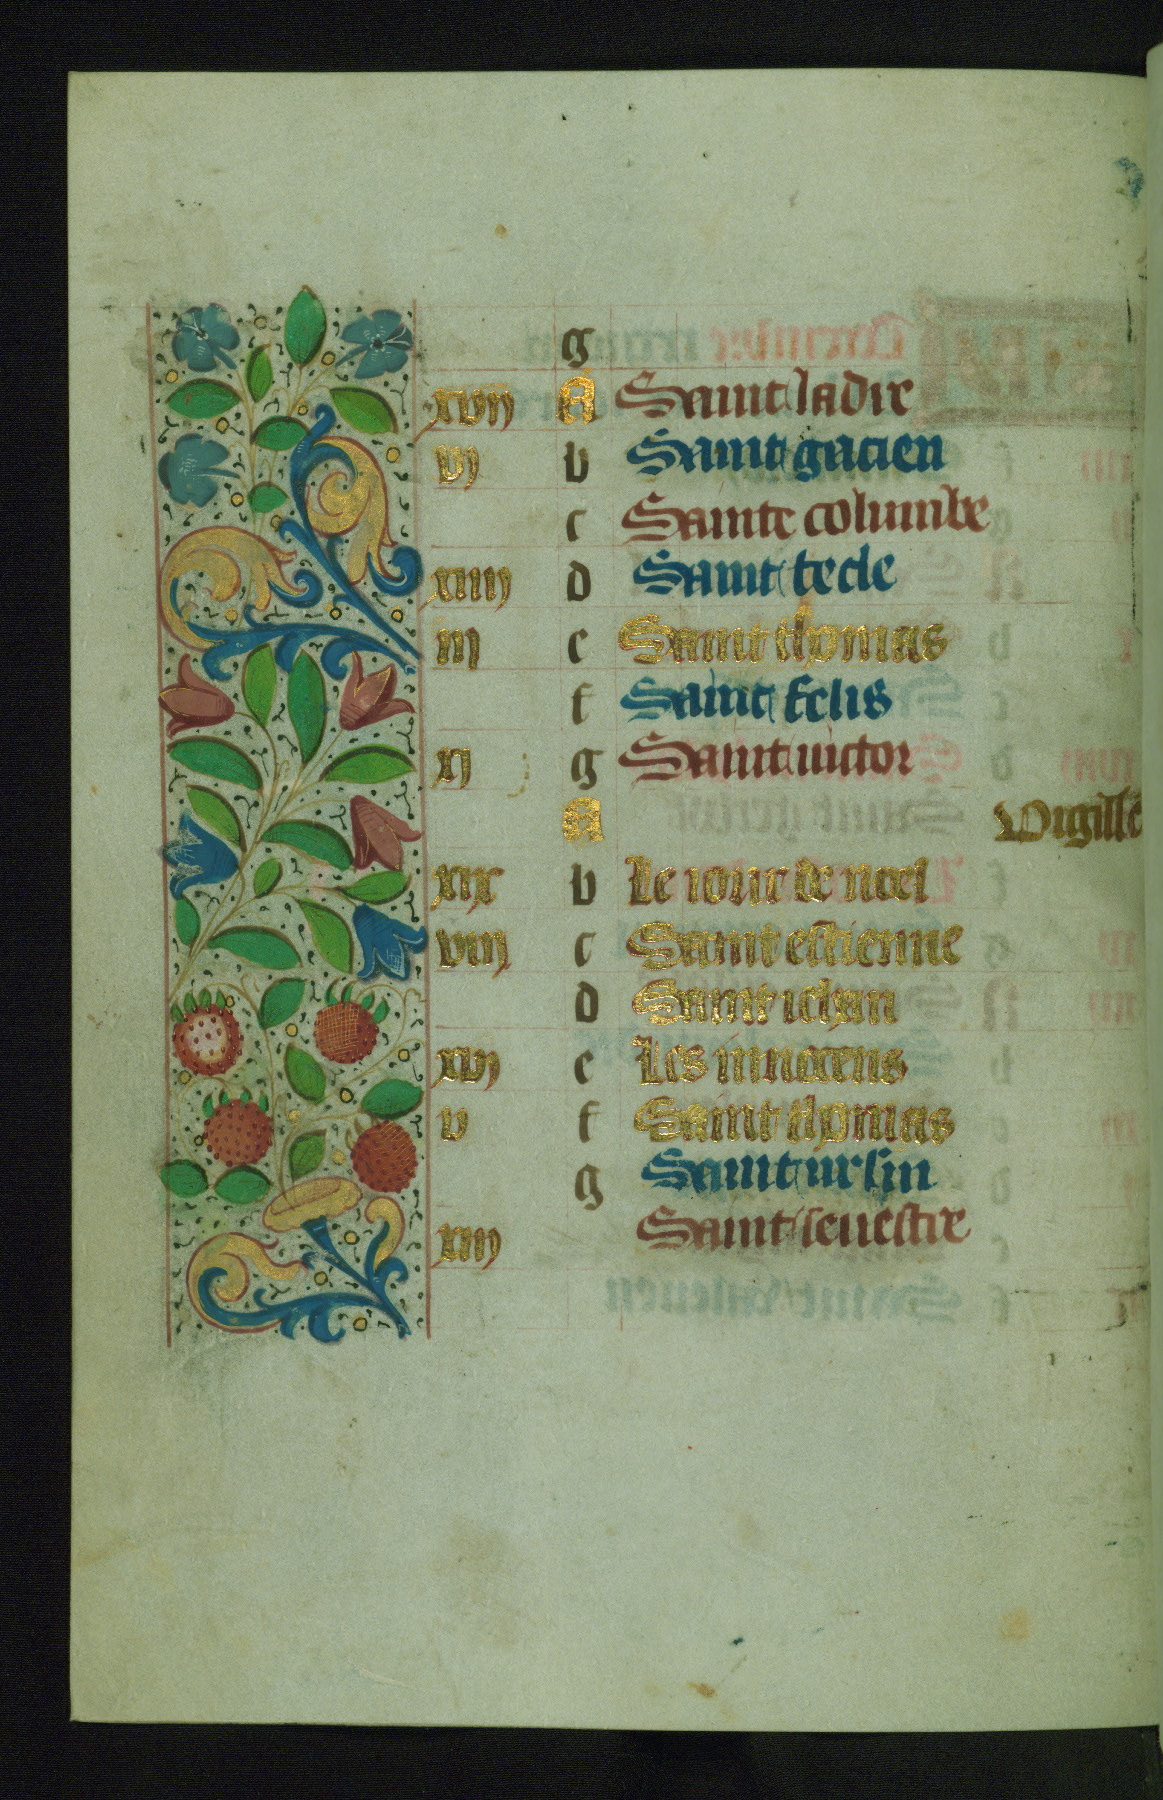 g
xvii A Saint ladre
vi b Saint gacien
c Sainte columbe
xiiii d Saint tecle
iii e Saint thomas
f Saint felis
xi g Saint victor
A Vigille
xix b Le iour de noel
viii c Saint estienne
d Saint iehan
xvi e Les innocens
v f Saint thomas
g Saint ursin
xiii Saint seuestre